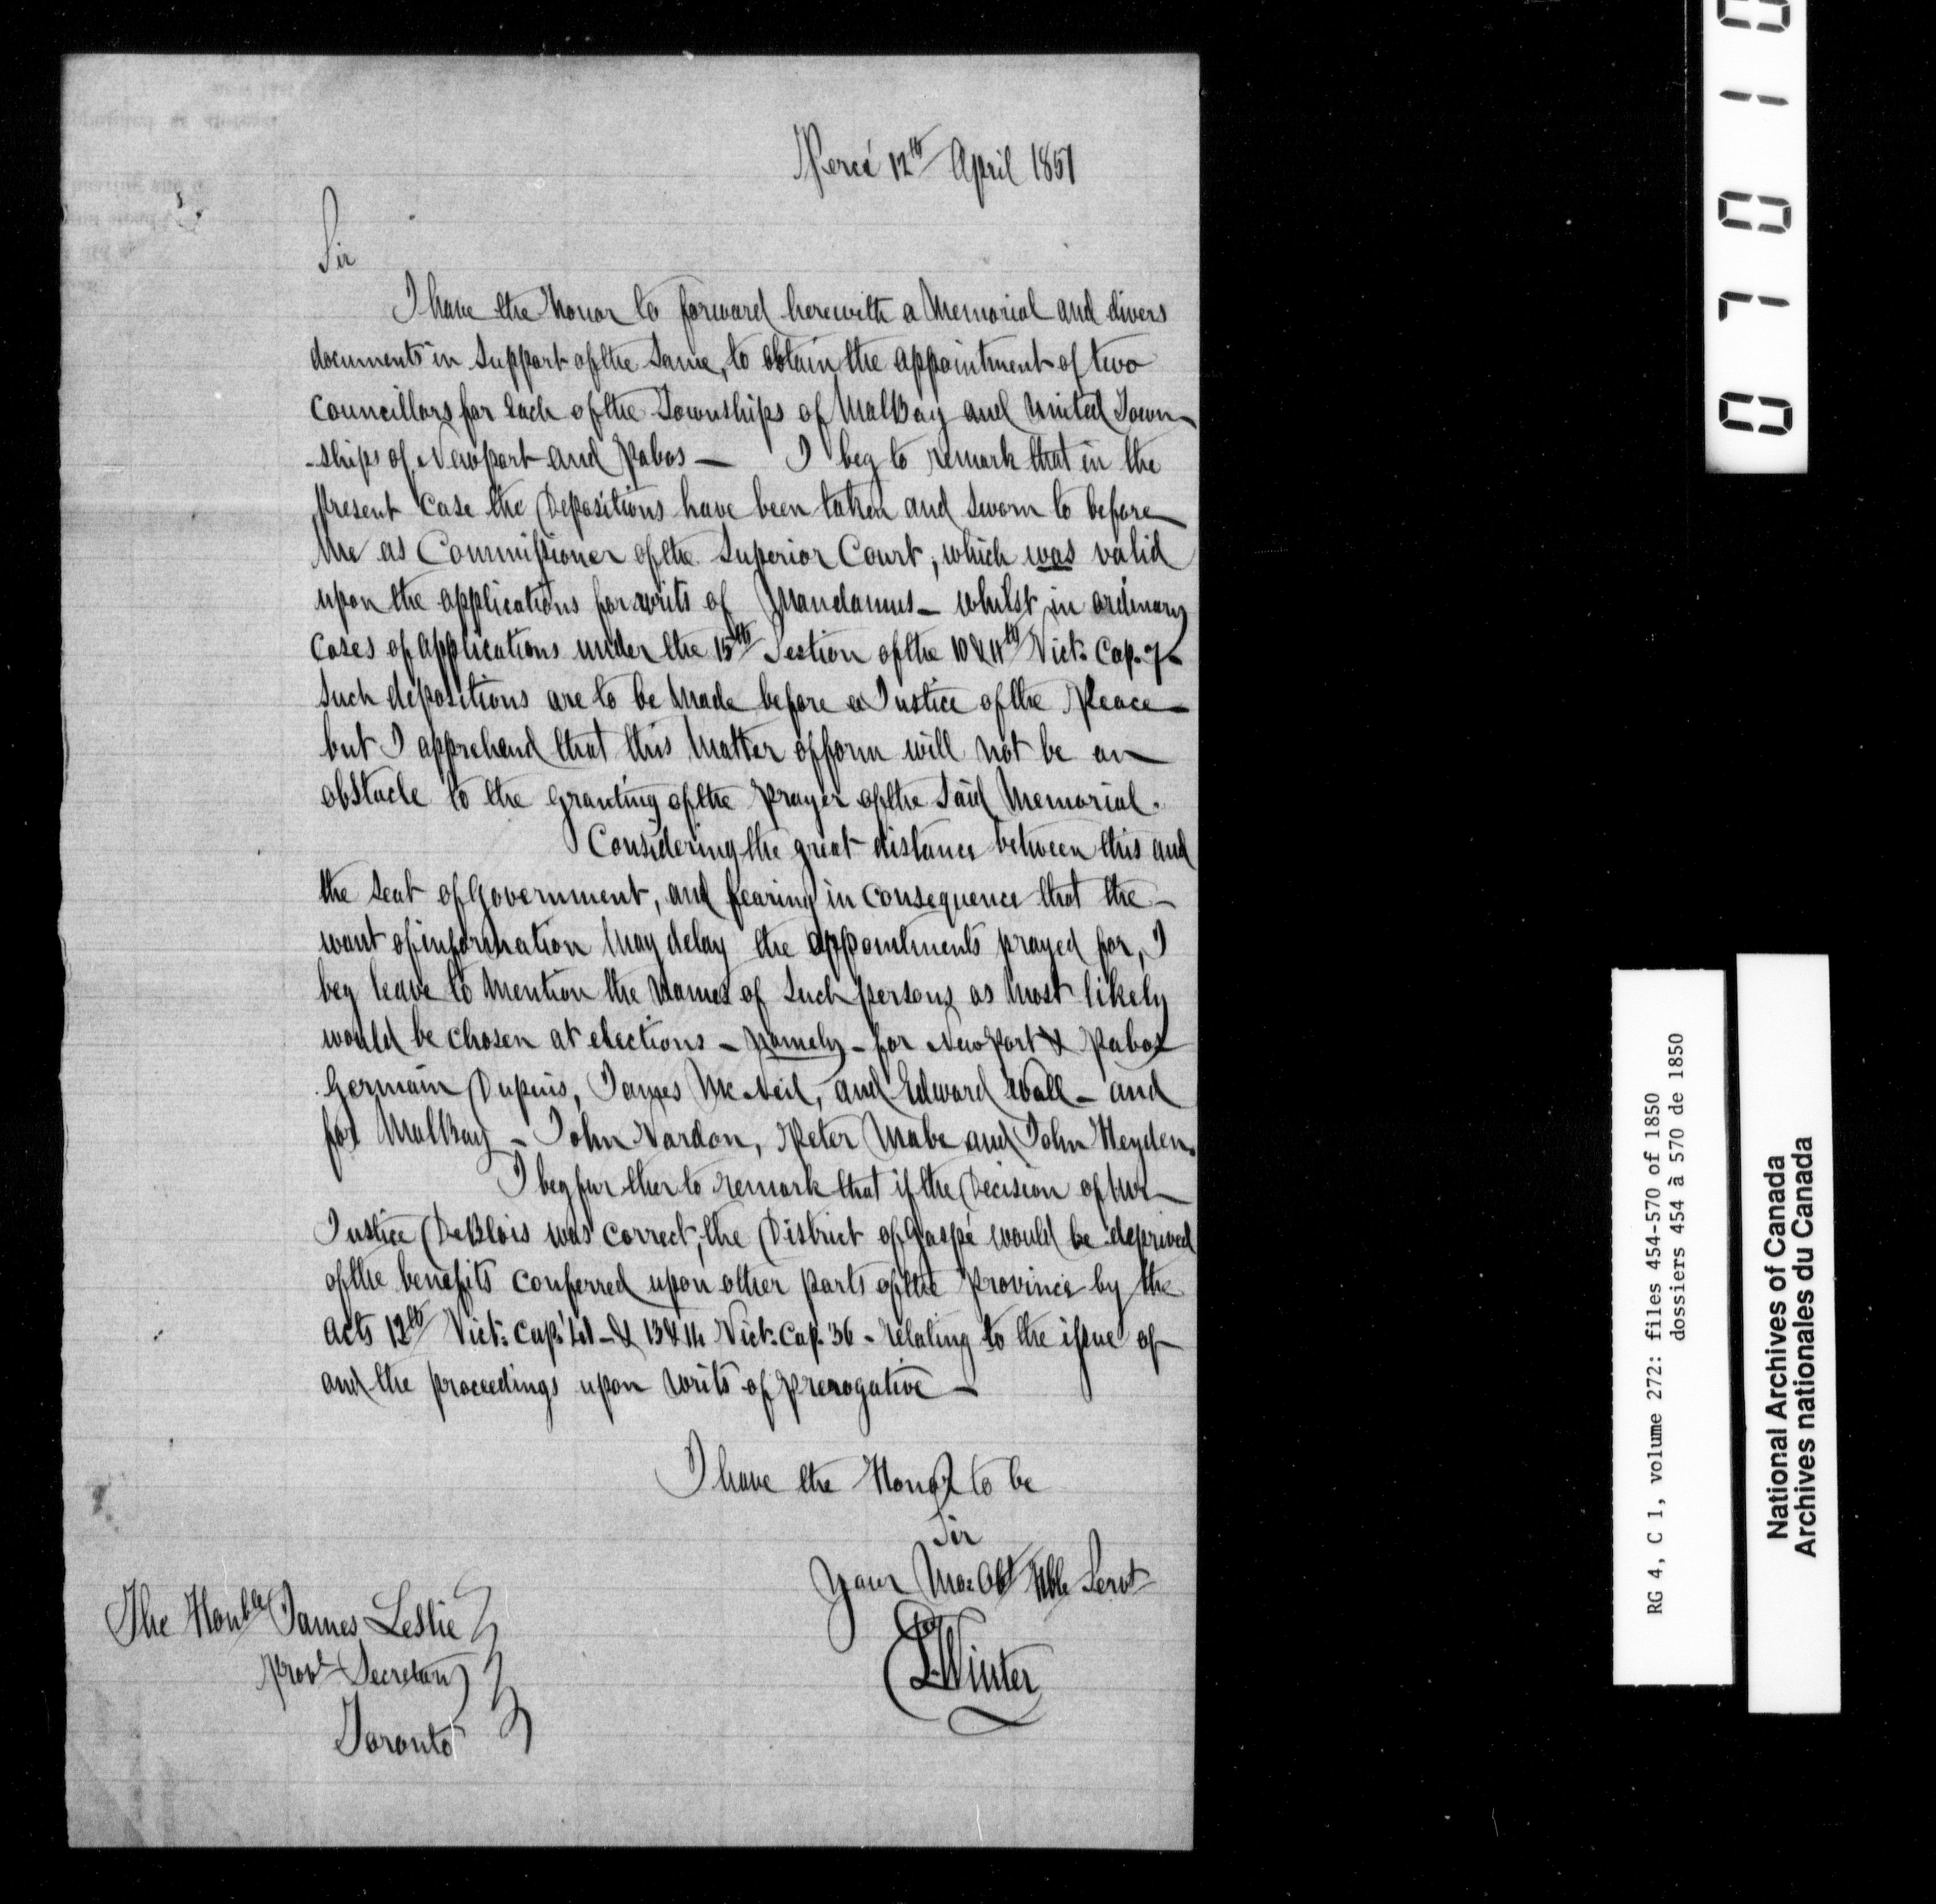 Percé 12th April 1851
Sir
I have the Honor to forward herewith a Memorial and divers
documents in support of the same, to obtain the appointment of two
Councillors for each of the Townships of MalBay and United Town-
-ships of Newport and Pabos — I beg to remark that in the
present case the Depositions have been taken and sworn to before
me as Commissioner of the Superior Court, which was valid
upon the applications for writs of Mandamus — whilst in ordinary
cases of applications under the 15th Section of the 10 & 11th Vict: Cap. 7 —
such depositions are to be made before a Justice of the Peace —
but I apprehend that this matter of form will not be an
obstacle to the granting of the prayer of the said Memorial.
Considering the great distance between this and
the Seat of Government, and fearing in consequence that the —
want of information may delay the appointments prayed for, I
beg leave to mention the names of such persons as most likely
would be chosen at elections — namely — for Newport & Pabos
Germain Dupuis, James McNeil, and Edward Wall — and
for MalBay — John Vardon, Peter Mabe and John Heyden.
I beg further to remark that if the Decision of Mr
Justice DeBlois was correct, the District of Gaspé would be deprived
of the benefits conferred upon other parts of the Province by the
Acts 12th Vict: Cap: 41 — & 13 & 14 Vict: Cap. 36 — relating to the issue of
and the proceedings upon writs of prerogative —
I have the Honor to be
Sir
Your Mo: Obt Hble Servt
Winter
The Honble James Leslie
Provl Secretary
Toronto
0 7 0 1 0
RG 4, C 1, volume 272: files 454-570 of 1850
dossiers 454 à 570 de 1850
National Archives of Canada
Archives nationales du Canada